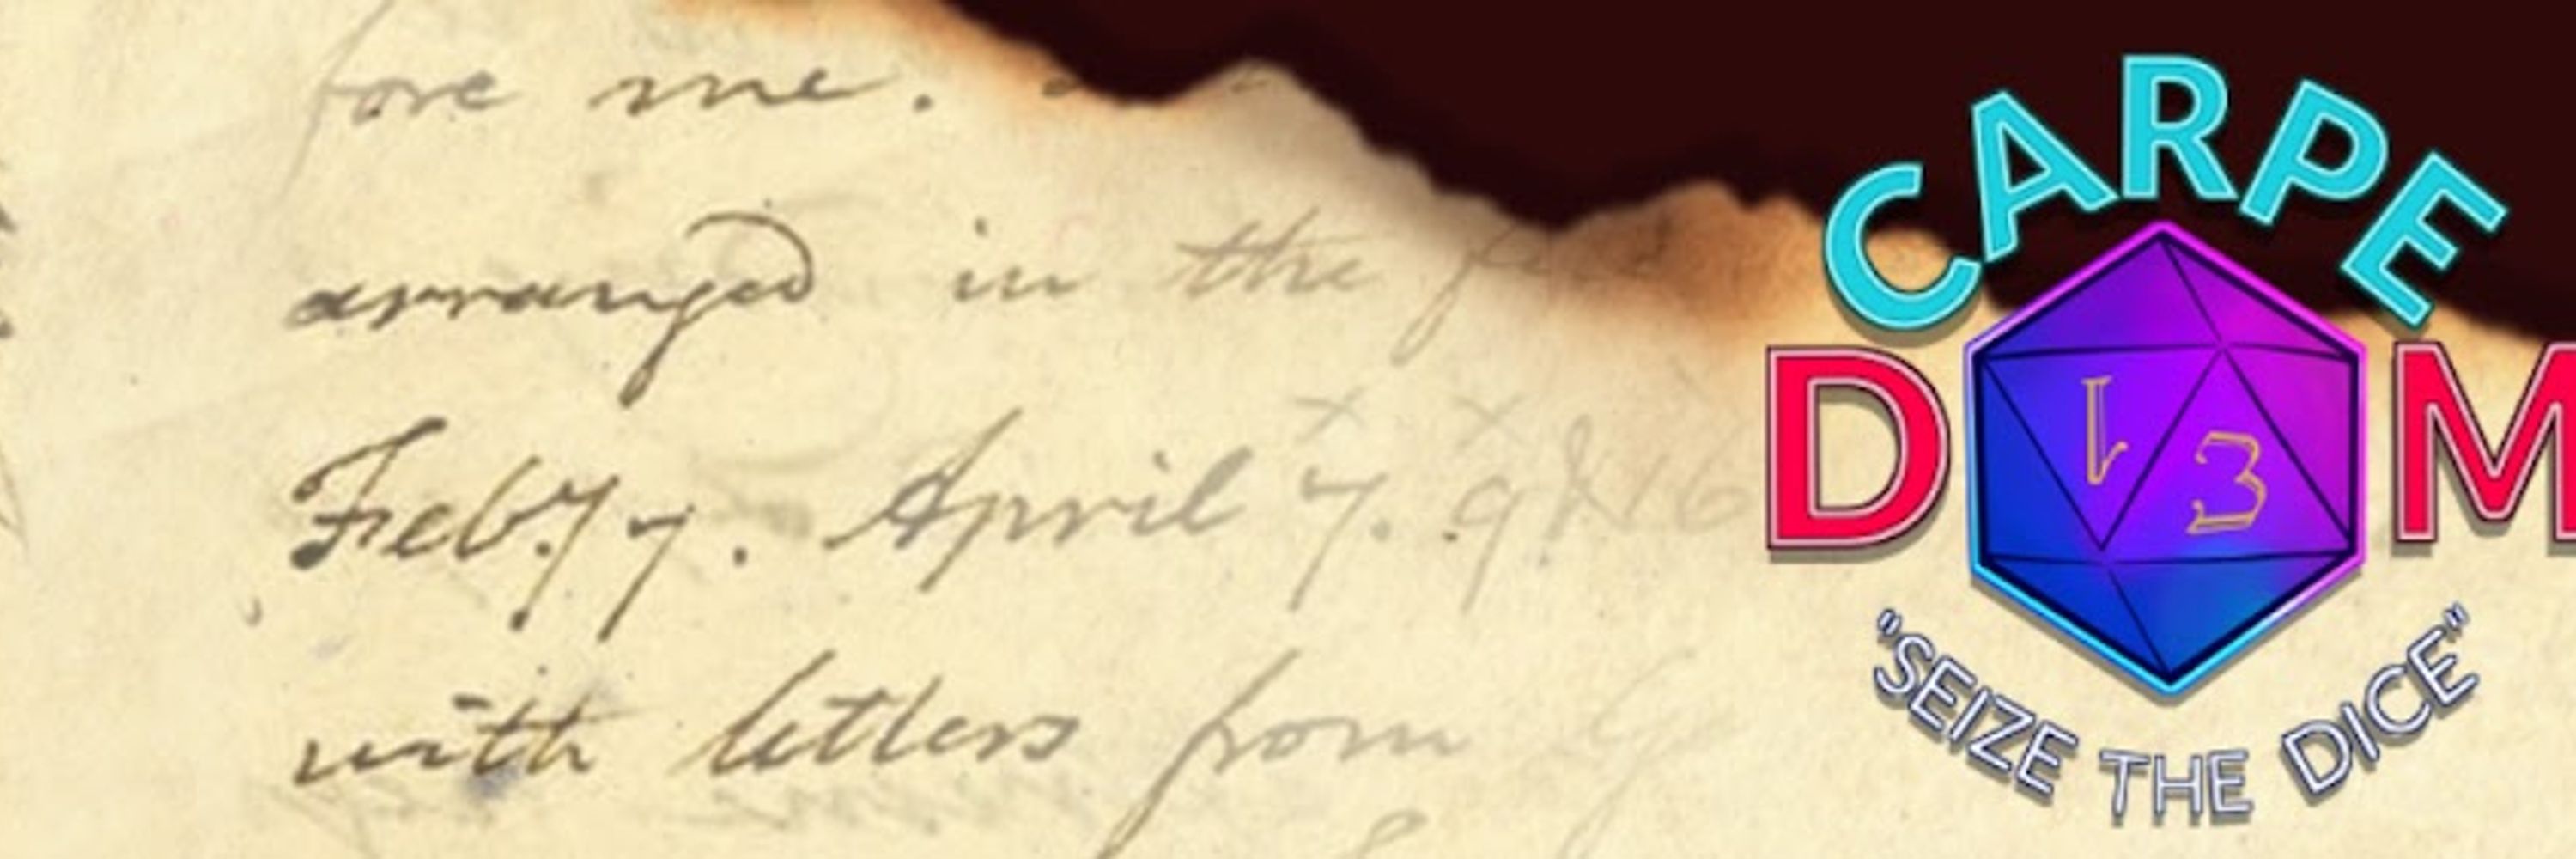 fore me.
arranged in the
Feb. 7 7. April 7. 9 & 16
with letters from
CARPE
D M
13
"SEIZE THE DICE"